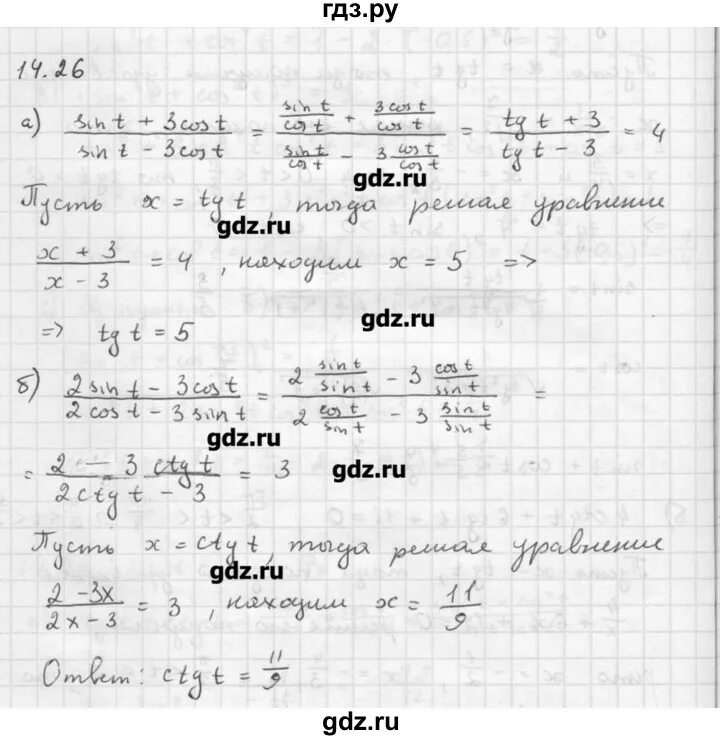 гдз.ру
14.26
а) (sin t + 3cos t)/(sin t − 3cos t) = (sin t/cos t + 3cos t/cos t)/(sin t/cos t − 3 cos t/cos t) = (tg t + 3)/(tg t − 3) = 4
gdz.ru
Пусть x = tg t, тогда решая уравнение
gdz.ru
(x + 3)/(x − 3) = 4, находим x = 5 =>
gdz.ru
=> tg t = 5
б) (2 sin t − 3cos t)/(2 cos t − 3 sin t) = (2 sin t/sin t − 3 cos t/sin t)/(2 cos t/sin t − 3 sin t/sin t) =
gdz.ru
= (2 − 3 ctg t)/(2ctg t − 3) = 3
gdz.ru
Пусть x = ctg t, тогда решая уравнение
gdz.ru
(2 − 3x)/(2x − 3) = 3, находим x = 11/9
gdz.ru
Ответ: ctg t = 11/9
gdz.ru